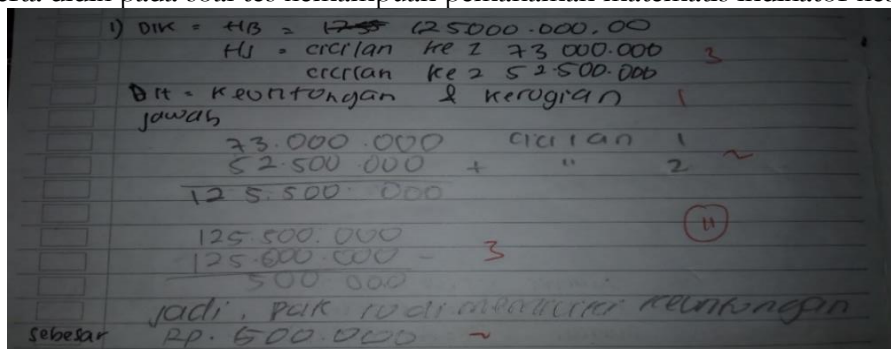 1) DIK = HB = 125000.000,00
HJ = cicilan ke 1 73 000.000 3
cicilan ke 2 52.500.000
Dit = Keuntungan & kerugian 1
Jawab
73.000.000 cicilan 1
52.500.000 + " 2 ~
125.500.000
11
125.500.000
125.000.000 - 3
500.000
Jadi, Pak rudi memiliki keuntungan
sebesar RP. 500.000 ~